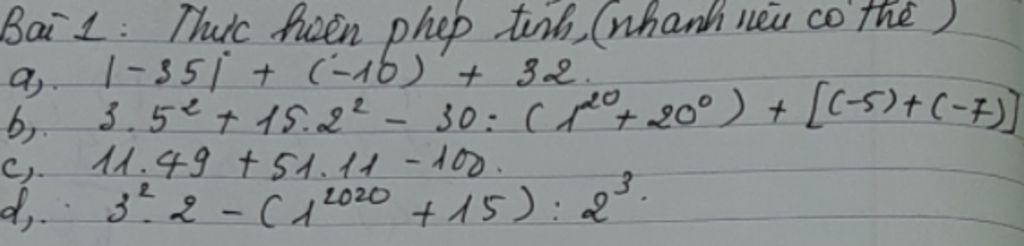 Bài 1: Thực hiện phép tính, (nhanh nếu có thể)
a). |-35| + (-10) + 32.
b). 3.5² + 15.2² - 30: (1²⁰ + 20⁰) + [(-5)+(-7)]
c). 11.49 + 51.11 - 100.
d). 3².2 - (1²⁰²⁰ + 15) : 2³.